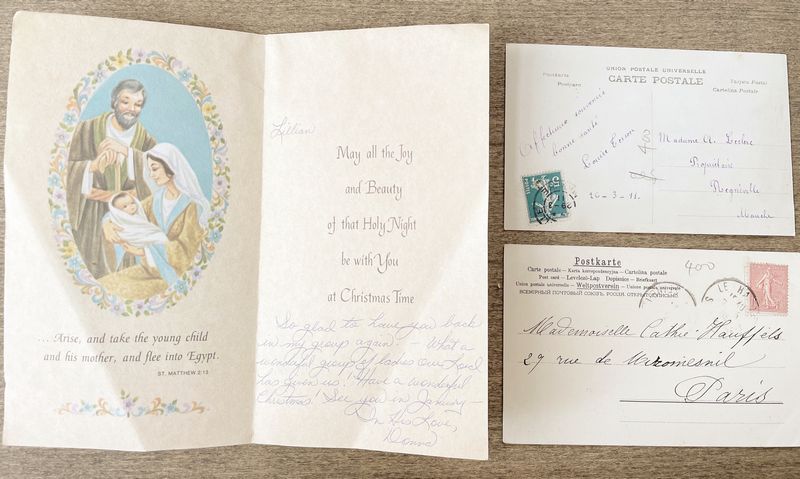 ... Arise, and take the young child
and his mother, and flee into Egypt.
ST. MATTHEW 2:13
Lillian
May all the Joy
and Beauty
of that Holy Night
be with You
at Christmas Time
So glad to have you back
in my group again! - What a
wonderful group of ladies our Lord
has given us! Have a wonderful
Christmas! See you in January -
In His Love,
Donna
UNION POSTALE UNIVERSELLE
Postkarte
CARTE POSTALE
Tarjeta Postal
Postcard
Cartolina Postale
Affectueux souvenirs
bonne santé
Louise
26-3-11.
400
Madame A. Leclerc
Propriétaire
Regnéville
Manche
Postkarte
400
Carte postale — Karta korespondencyjna — Cartolina postale
Post card — Levelező-Lap Dopisnice — Briefkaart
Union postale universelle — Weltpostverein — Unione postale universale
ВСЕМІРНЫЙ ПОЧТОВЫЙ СОЮЗЪ. РОССІЯ. ОТКРЫТОЕ ПИСЬМО
LE
Mademoiselle Cathe Hauffels
27 rue de Miromesnil
Paris